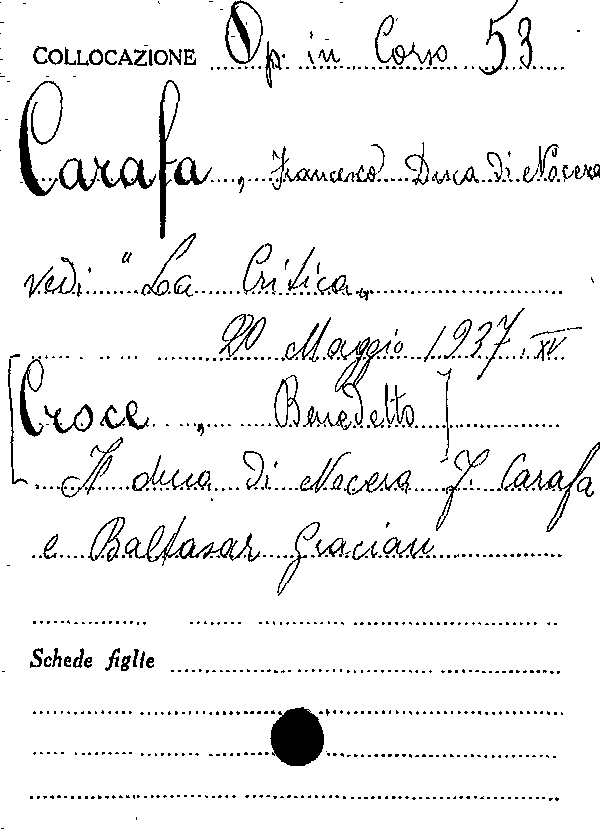 COLLOCAZIONE Op. in Corso 53
Carafa, Francesco Duca di Nocera
vedi "La Critica„
20 Maggio 1937. XV
[Croce, Benedetto]
Il duca di Nocera F. Carafa
e Baltasar Gracian
Schede figlie